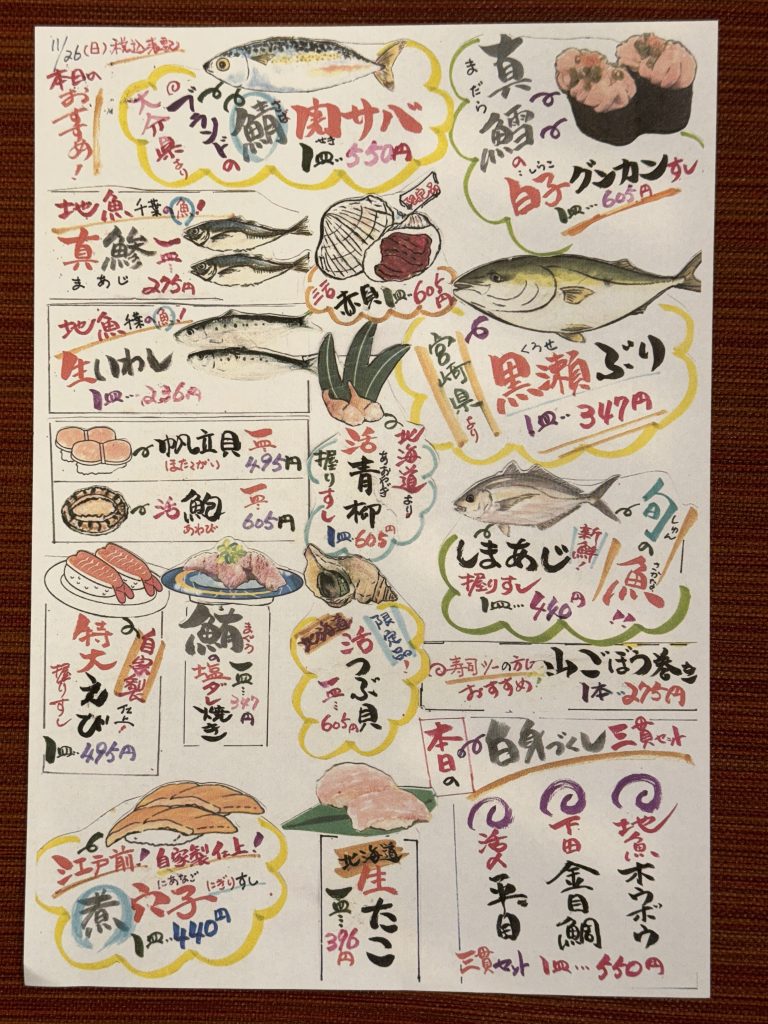 11/26(日)税込表記
本日の
おすすめ!
大分県より
ブランドの
鯖 さば
関サバ
せき
1皿‥550円
真鱈の
まだら
白子グンカンすし
しらこ
1皿‥605円
地魚 千葉の魚!
真鯵
まあじ
一皿‥275円
限定品
活赤貝1皿‥605円
地魚 千葉の魚!
生いわし
1皿‥236円
宮崎県より
黒瀬ぶり
くろせ
1皿‥347円
帆立貝
ほたてがい
一皿‥495円
活鮑
あわび
一皿‥605円
北海道より
活青柳
あおやぎ
握りすし
1皿‥605円
旬の魚!!
しゅん
さかな
新鮮!
しまあじ
握りすし
1皿‥440円
自家製仕上!
特大えび
握りすし
1皿‥495円
鮪の塩ダレ焼き
まぐろ
一皿‥347円
限定品!
北海道
活つぶ貝
一皿‥605円
寿司ツーの方に
おすすめ!
山ごぼう巻き
1本‥275円
本日の
白身づくし三貫セット
地魚ホウボウ
下田金目鯛
活〆平目
三貫セット 1皿‥550円
江戸前!自家製仕上!
煮穴子
にあなご
にぎりすし
1皿‥440円
北海道
生たこ
一皿‥396円